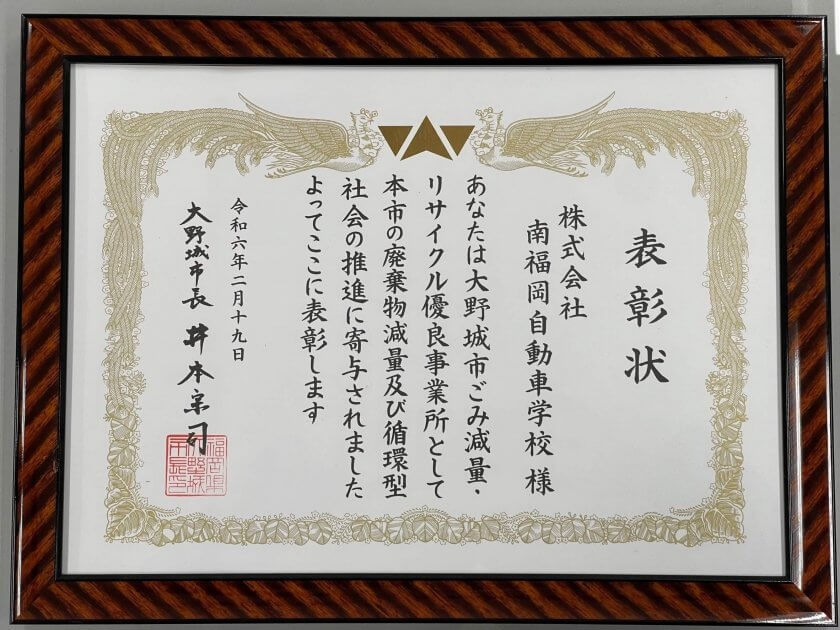 表彰状
株式会社
南福岡自動車学校 様
あなたは大野城市ごみ減量・
リサイクル優良事業所として
本市の廃棄物減量及び循環型
社会の推進に寄与されました
よってここに表彰します
令和六年二月十九日
大野城市長 井本宗司
福岡県
大野城
市長之印